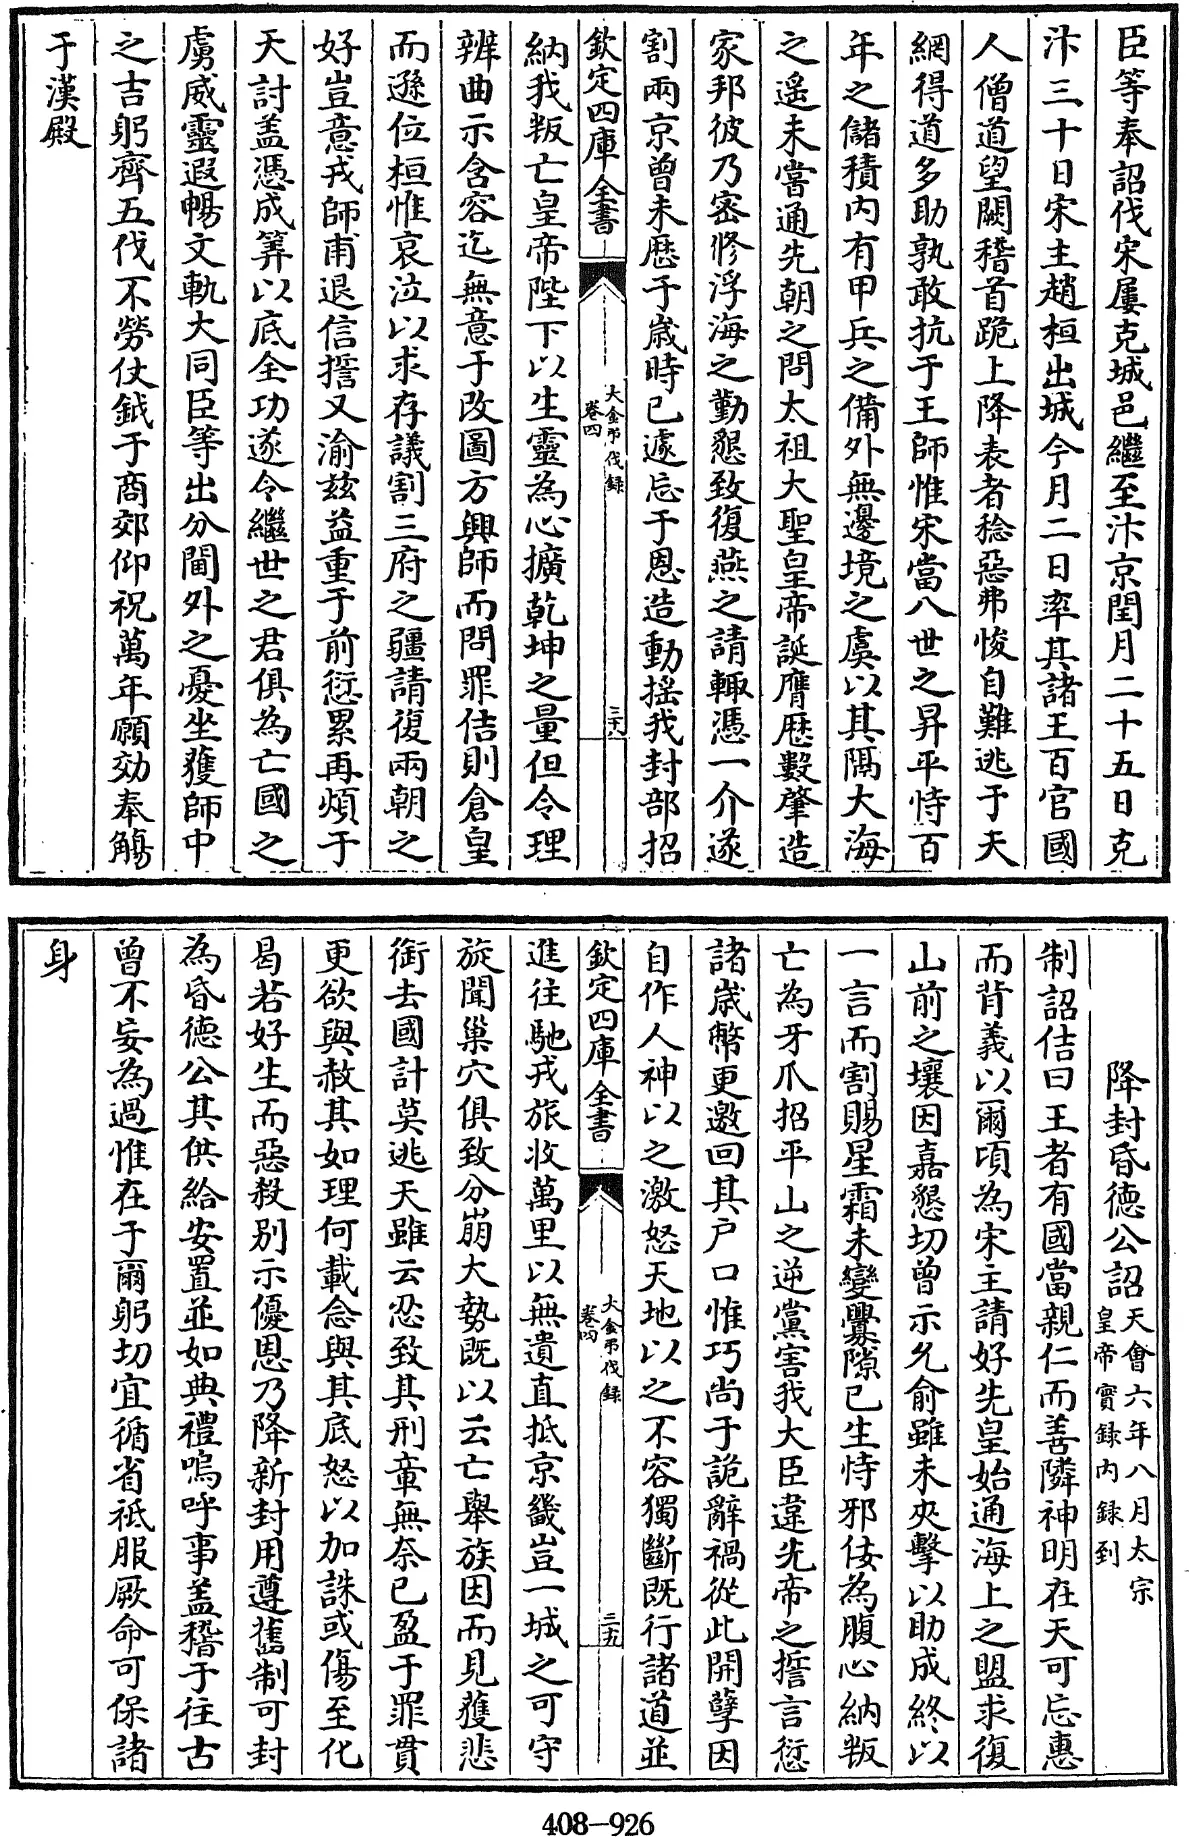 臣等奉詔伐宋屢克城邑繼至汴京閏月二十五日克
汴三十日宋主趙桓出城今月二日率其諸王百官國
人僧道望闕稽首跪上降表者稔惡弗悛自難逃于天
網得道多助孰敢抗于王師惟宋當八世之昇平恃百
年之儲積内有甲兵之備外無邊境之虞以其隔大海
之遥未嘗通先朝之問太祖大聖皇帝誕膺歷數肇造
家邦彼乃密修浮海之勤懇致復燕之請輙憑一介遂
割兩京曾未歴于歲時已遽忘于恩造動揺我封部招
欽定四庫全書
大金弔伐録
卷四
三十八
納我叛亡皇帝陛下以生靈為心擴乾坤之量但令理
辨曲示含容迄無意于改圖方興師而問罪佶則倉皇
而遜位桓惟哀泣以求存議割三府之疆請復兩朝之
好豈意戎師甫退信擔又渝兹益重于前愆累再煩于
天討盖憑成筭以底全功遂令繼世之君俱為亡國之
虜威靈遐暢文軌大同臣等出分閫外之憂坐獲師中
之吉躬齊五伐不勞仗鉞于商郊仰祝萬年願効奉觴
于漢殿
降封昏德公詔
天會六年八月太宗
皇帝實録内録到
制詔佶曰王者有國當親仁而善隣神明在天可忘惠
而背義以爾頃為宋主請好先皇始通海上之盟求復
山前之壤因嘉懇切曾示允俞雖未夾擊以助成終以
一言而割賜星霜未變釁隙已生恃邪佞為腹心納叛
亡為牙爪招平山之逆黨害我大臣違先帝之誓言愆
諸歲幣更邀回其户口惟巧尚于詭辭禍從此開孽因
自作人神以之激怒天地以之不容獨斷既行諸道並
欽定四庫全書
大金弔伐録
卷四
三十九
進往馳戎旅收萬里以無遺直抵京畿豈一城之可守
旋聞巢穴俱致分崩大勢既以云亡舉族因而見獲悲
銜去國計莫逃天雖云忍致其刑章無奈已盈于罪貫
更欲與赦其如理何載念與其底怒以加誅或傷至化
曷若好生而惡殺别示優恩乃降新封用遵舊制可封
為昏德公其供給安置並如典禮嗚呼事盖稽于往古
曾不妄為過惟在于爾躬切宜循省祗服厥命可保諸
身
408-926